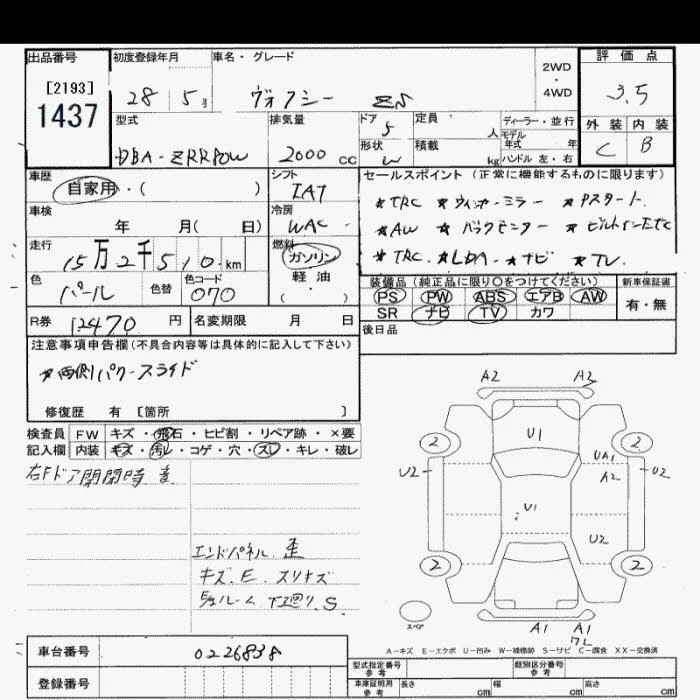 出品番号 初度登録年月 車名・グレード 2WD・4WD 評価点
[2193]
1437
28 5月 ヴォクシー ZS 3.5
型式 排気量 ドア 5 定員 人 ディーラー・並行 外装 内装
モデル年式 年
DBA-ZRR80W 2000 CC 形状 W 積載 kg ハンドル 左・右 C B
車歴 シフト セールスポイント (正常に機能するものに限ります)
自家用・( ) IAT ★TRC ★ウィンカーミラー ★Pスタート
車検 冷房 ★AW ★バックモニター ★ビルトインETC
年 月( 日) WAC ★TRC ★LDA ★ナビ ★TV
走行 燃料
15万2千510km ガソリン・軽油・( )
色 色替 色コード 装備品 (純正品に限り○をつけてください) 新車保証書
パール 070 PS PW ABS エアB AW 有・無
R券 12470円 名変期限 月 日 SR ナビ TV カワ
後日品
注意事項申告欄 (不具合内容等は具体的に記入して下さい)
★両側パワースライド
修復歴 有 [箇所 ]
検査員 FW キズ・飛石・ヒビ割・リペア跡・×要
記入欄 内装 キズ・汚レ・コゲ・穴・スレ・キレ・破レ
右Fドア開閉時 音
エンドパネル 歪
キズ.E.スリキズ
下廻り.S
A2 A2
2 U1 2
U2 UA1 U2
A2
U1
U2
2 2
スペア
A1 A1
A-キズ E-エクボ U-凹み W-補修跡 S-サビ C-腐食 XX-交換済
車台番号 0226838
型式指定番号 参考 類別区分番号 参考
登録番号 車庫証明用 参考 長さ cm 幅 cm 高さ cm